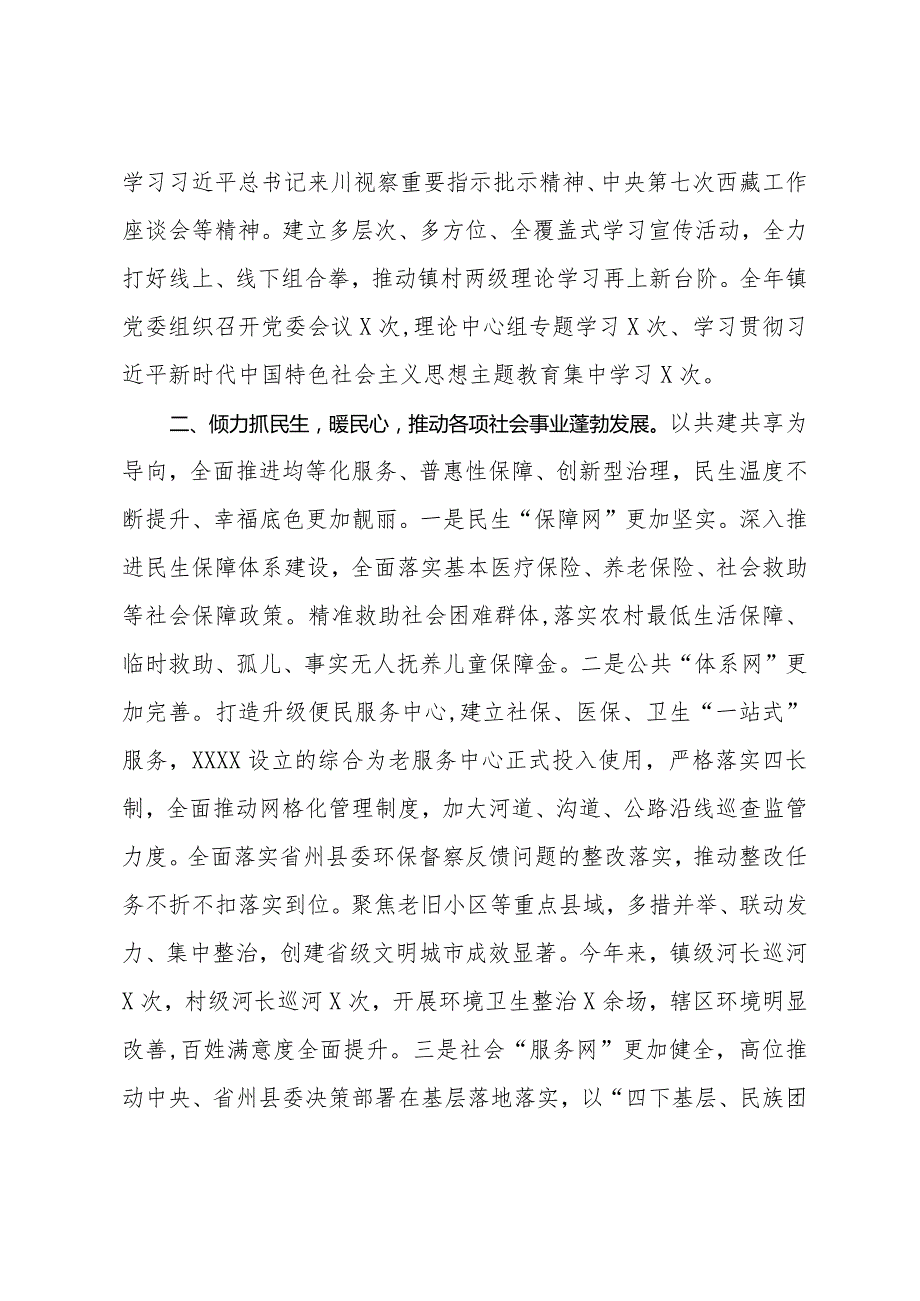 学习习近平总书记来川视察重要指示批示精神、中央第七次西藏工作
座谈会等精神。建立多层次、多方位、全覆盖式学习宣传活动，全力
打好线上、线下组合拳，推动镇村两级理论学习再上新台阶。全年镇
党委组织召开党委会议X次,理论中心组专题学习X次、学习贯彻习
近平新时代中国特色社会主义思想主题教育集中学习X次。
二、倾力抓民生，暖民心，推动各项社会事业蓬勃发展。以共建共享为
导向，全面推进均等化服务、普惠性保障、创新型治理，民生温度不
断提升、幸福底色更加靓丽。一是民生“保障网”更加坚实。深入推
进民生保障体系建设，全面落实基本医疗保险、养老保险、社会救助
等社会保障政策。精准救助社会困难群体,落实农村最低生活保障、
临时救助、孤儿、事实无人抚养儿童保障金。二是公共“体系网”更
加完善。打造升级便民服务中心,建立社保、医保、卫生“一站式”
服务，XXXX设立的综合为老服务中心正式投入使用，严格落实四长
制，全面推动网格化管理制度，加大河道、沟道、公路沿线巡查监管
力度。全面落实省州县委环保督察反馈问题的整改落实，推动整改任
务不折不扣落实到位。聚焦老旧小区等重点县域，多措并举、联动发
力、集中整治，创建省级文明城市成效显著。今年来，镇级河长巡河
X次，村级河长巡河X次，开展环境卫生整治X余场，辖区环境明显
改善,百姓满意度全面提升。三是社会“服务网”更加健全，高位推
动中央、省州县委决策部署在基层落地落实，以“四下基层、民族团